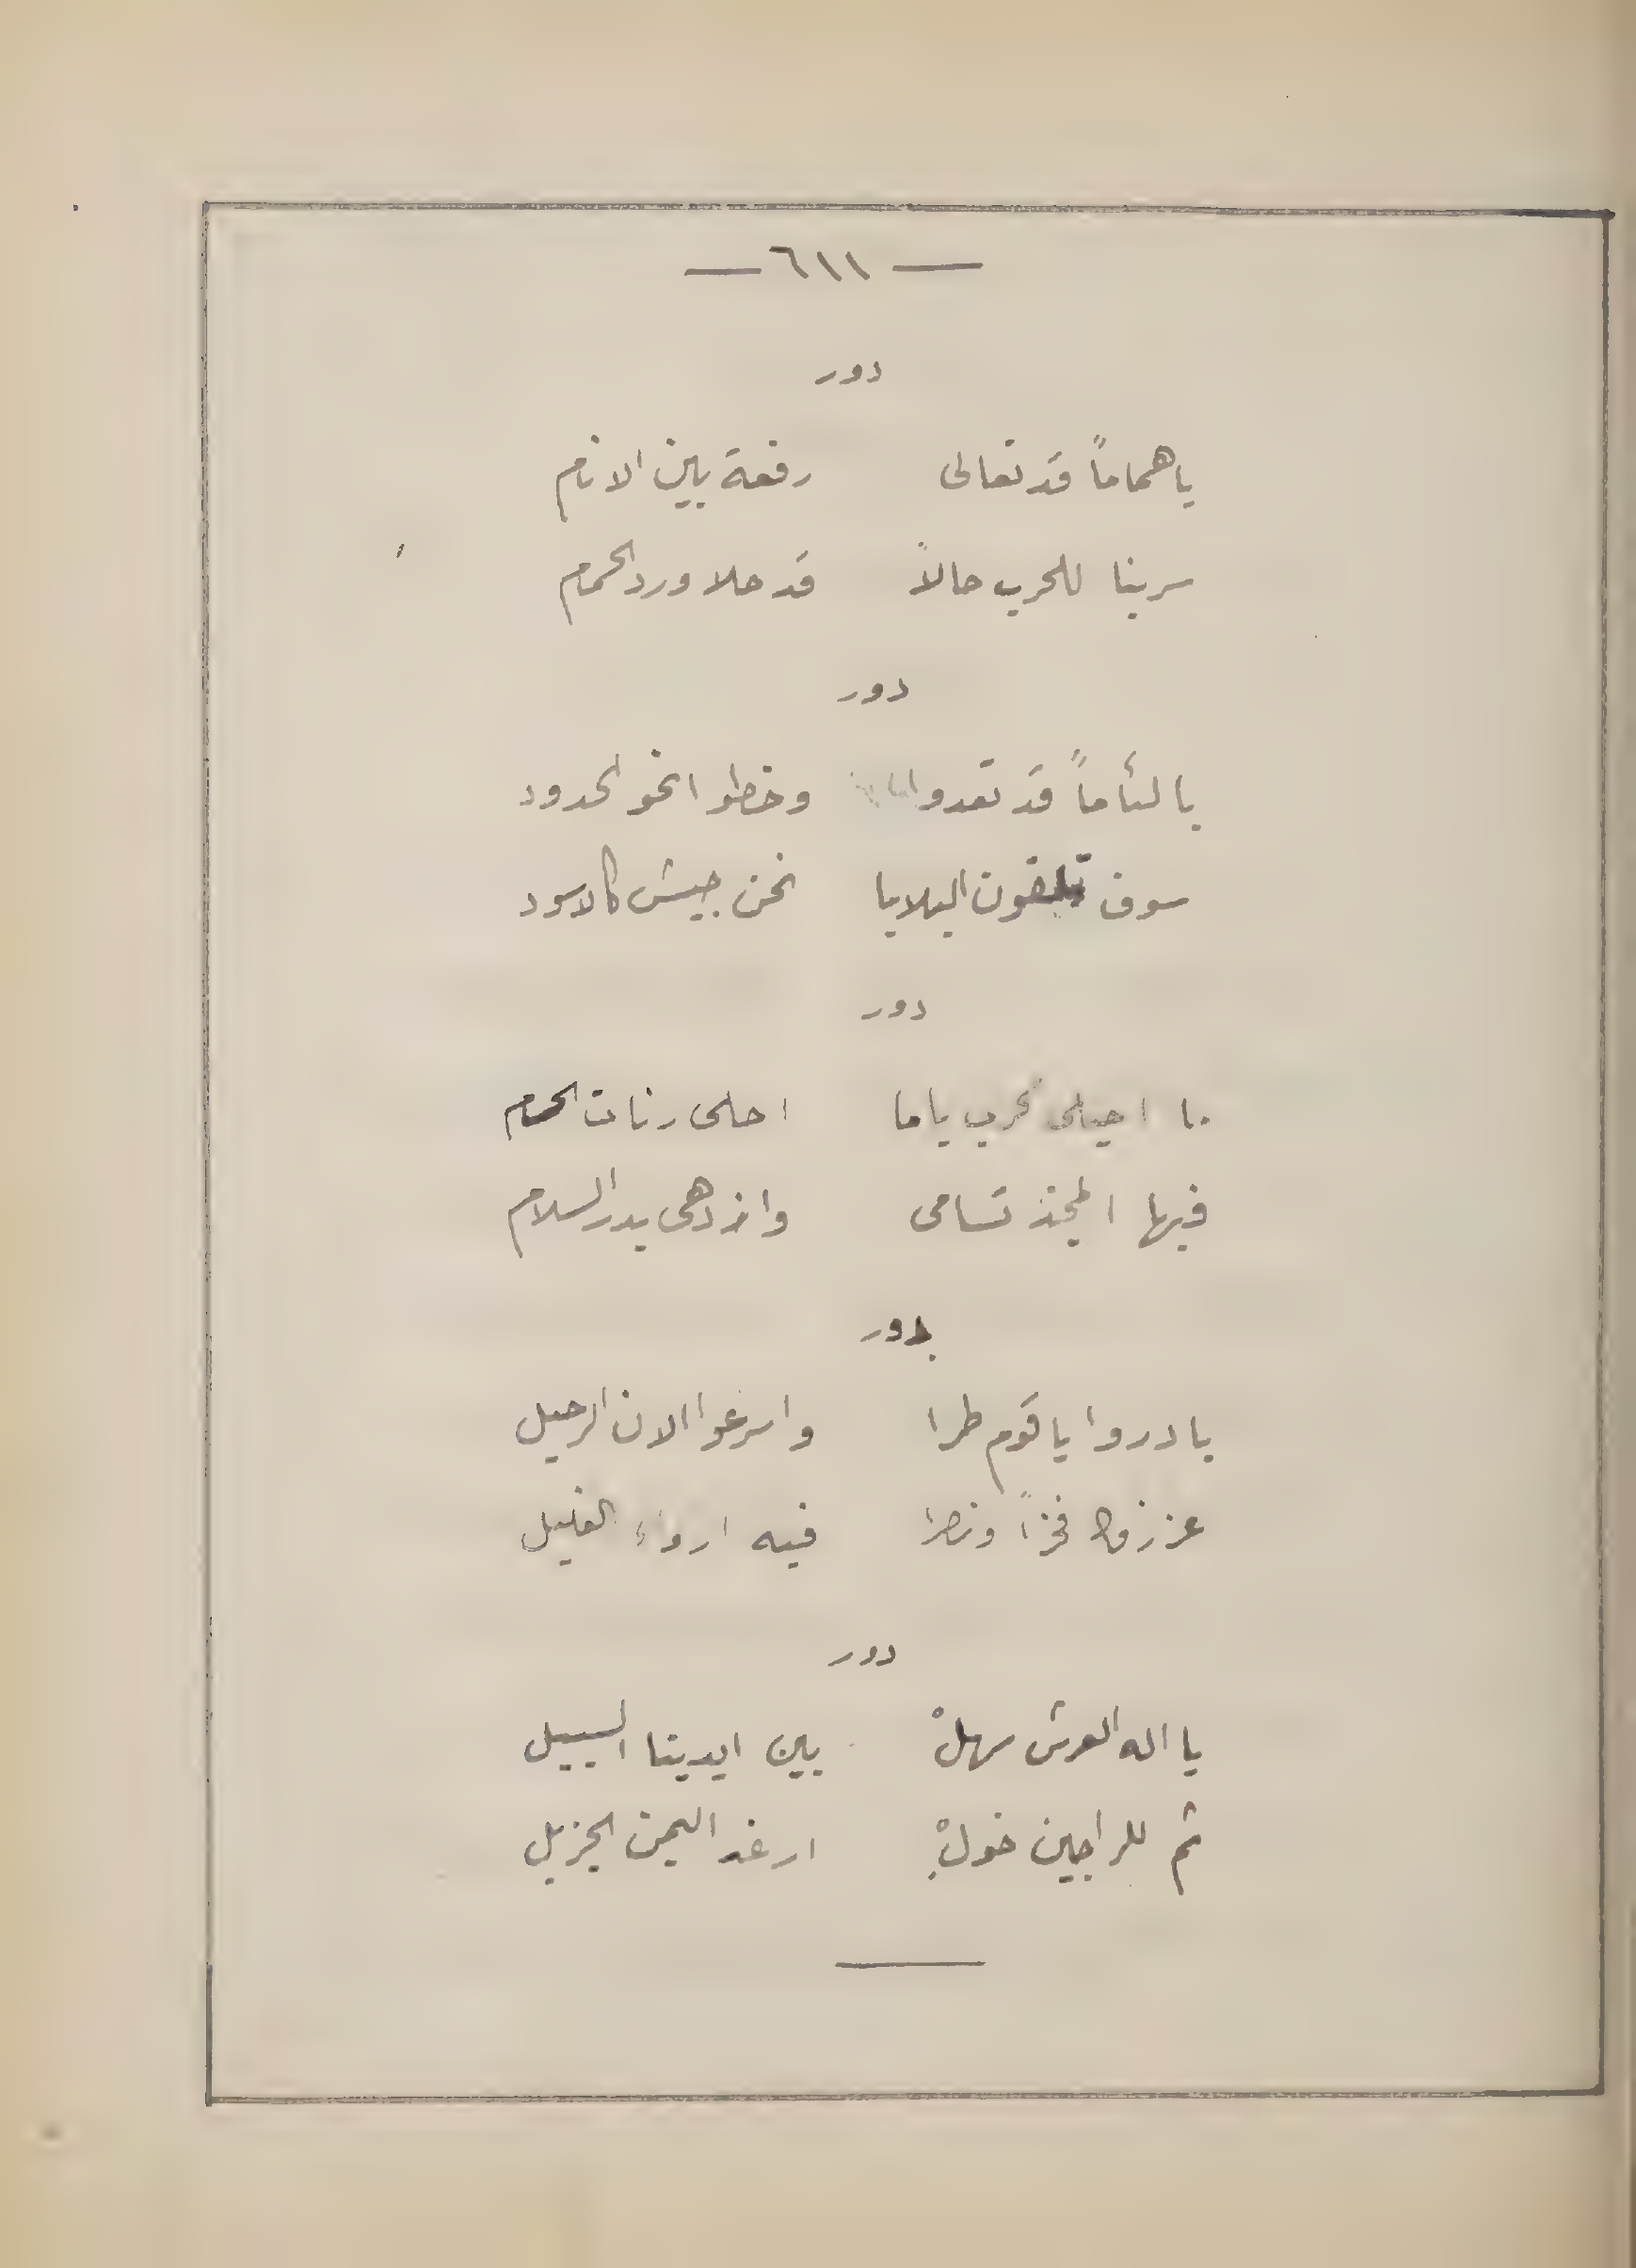 — ٦١١ —
دور
ياهماماً قد تعالى رفعة بين الانام
سربنا للحرب حالاً قد حلا ورد الحمام
دور
يالئاماً قد تعدوا وخطوا نحو الحدود
سوف تلقون البلايا نحن جيش كالاسود
دور
ما احيلى الحرب ياما احلى رنات الحسام
فيها المجد تسامى وازدهى بدر السلام
دور
بادروا ياقوم طرا واسرعوا الان الرحيل
عززوه فخراً ونصرا فيه ارواء الغليل
دور
يا اله العرش سهلْ بين ايدينا السبيل
ثم للراجين خولْ ارغد اليمن الجزيل